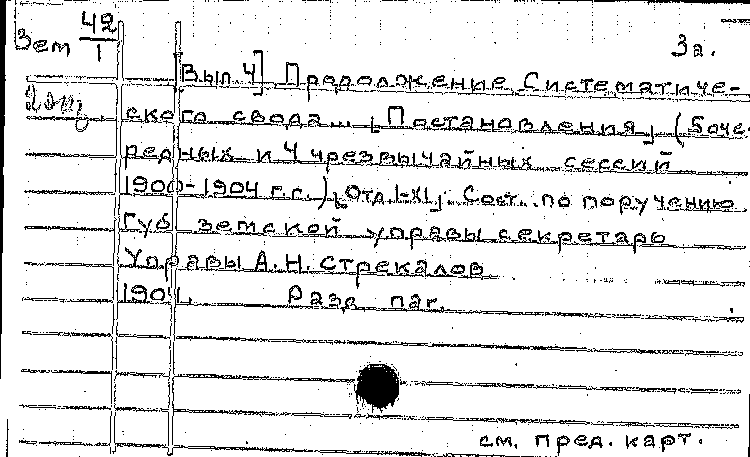 Зем 42/1 3а.
[Вып.4] Продолжение Систематиче-
2 экз. ского свода... [Постановления] (5 оче-
редных и 4 чрезвычайных сессий
1900-1904 г.г.) [Отд. I-XI]. Сост. по поручению
Губ земской управы секретарь
Управы А.Н. Стрекалов
1904. Разд. паг.
см. пред. карт.